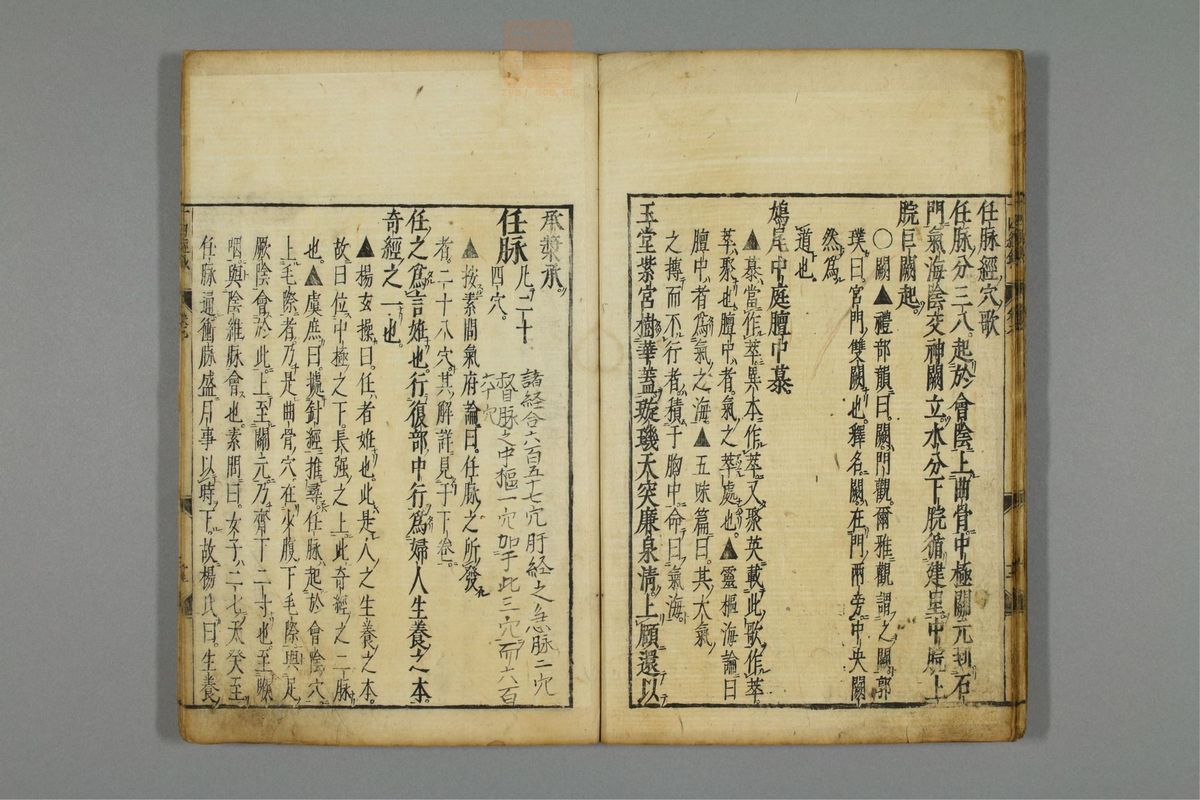 任脉經穴歌
任脉分三八起於會陰上曲骨中極關元到石
門氣海陰交神闕立水分下脘循建里中脘上
脘巨闕起
○闕▲禮部韻曰闕門觀爾雅觀謂之闕郭
璞曰宮門雙闕也釋名闕在門兩旁中央闕
然爲
道也
鳩尾中庭膻中慕
▲慕當作萃異本作萃又聚英載此歌作萃
萃聚也膻中者氣之萃處也▲靈樞海論曰
膻中者爲氣之海▲五味篇曰其大氣
之摶而不行者積于胸中命曰氣海
玉堂紫宮樹華蓋璇璣天突廉泉清上頤還以
承漿承
任脉
凡二十
四穴
諸経合六百五十七穴肝経之急脉二穴
督脉之中樞一穴加于此三穴而六百
六十穴
▲按素問氣府論曰任脉之所發
者二十八穴其解詳見于下卷
任之爲言妊也行腹部中行爲婦人生養之本
奇經之一也
▲楊玄操曰任者妊也此是人之生養之本
故曰位中極之下長强之上此奇經之二脉
也▲虞庶曰據針經推尋任脉起於會陰穴
上毛際者乃是曲骨穴在少腹下毛際與足
厥陰會於此上至關元乃齊下三寸也至喉
咽與陰維脉會也素問曰女子二七天癸至
任脉通衝脉盛月事以時下故楊氏曰生養